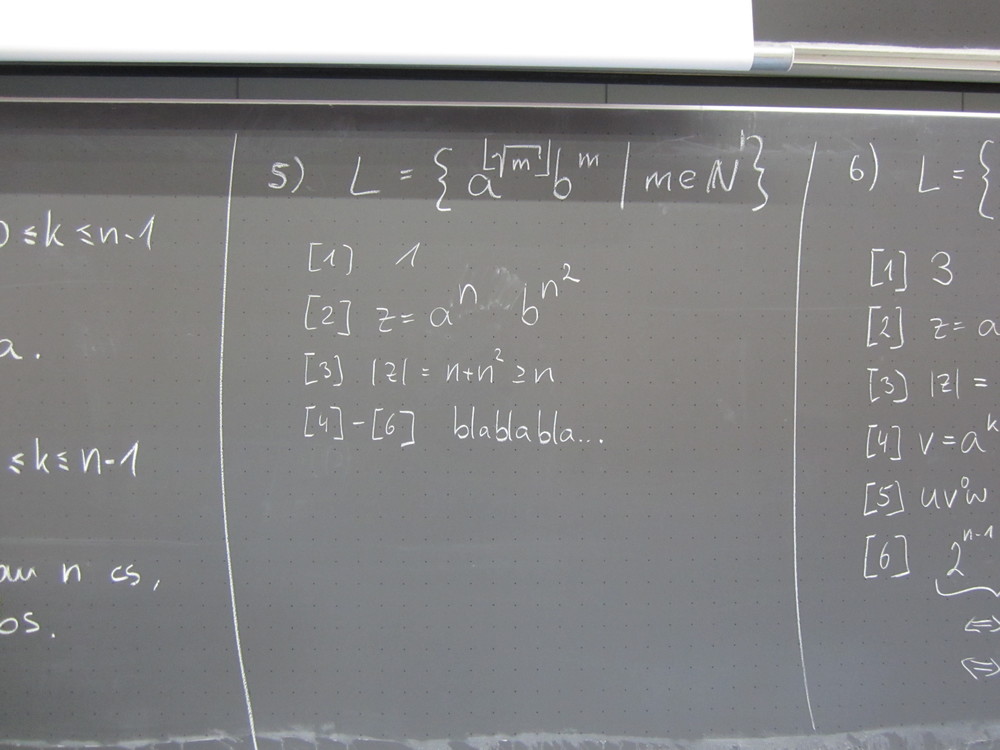 0 ≤ k ≤ n-1
a.
≤ k ≤ n-1
n cs,
os.
5) L = { a^⌊√m⌋ b^m | m ∈ N }
[1] 1
[2] z = a^n b^n^2
[3] |z| = n+n^2 ≥ n
[4]-[6] blablabla...
6) L = {
[1] 3
[2] z = a
[3] |z| =
[4] v = a^k
[5] uv^0w
[6] 2^n-1
⇔
⇔